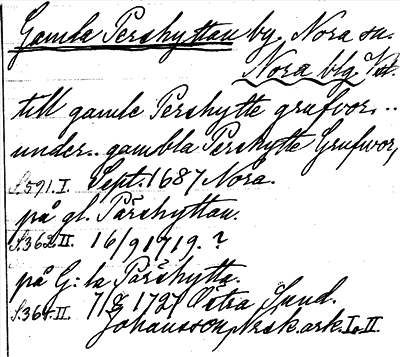 Gamla Pershyttan by, Nora sn.
Nora bg. Vstm.
till gamle Pershytte grufvor,..
under.. gambla Pershytte Grufwor,
s. 591. I. Sept. 1687 Nora.
på gl. Pärshyttan.
s. 362 II. 16/9 1719. ?
på G:la Pärshytta.
s. 364. II. 7/8 1727 Östra Sund.
Johansson, Norsk. ark. I o. II